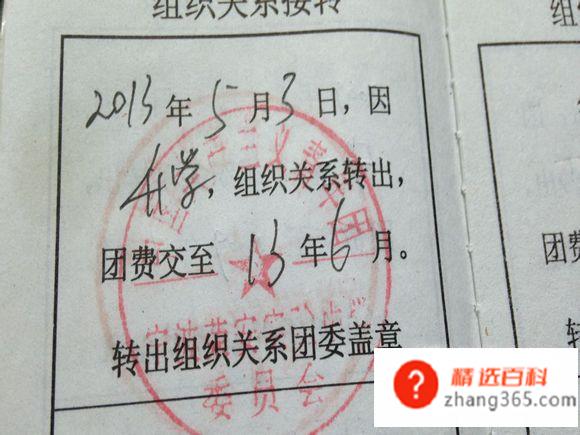 组织关系接转
2013年5月3日，因
升学，组织关系转出，
团费交至13年6月。
转出组织关系团委盖章
委员会
精选百科
zhang365.com